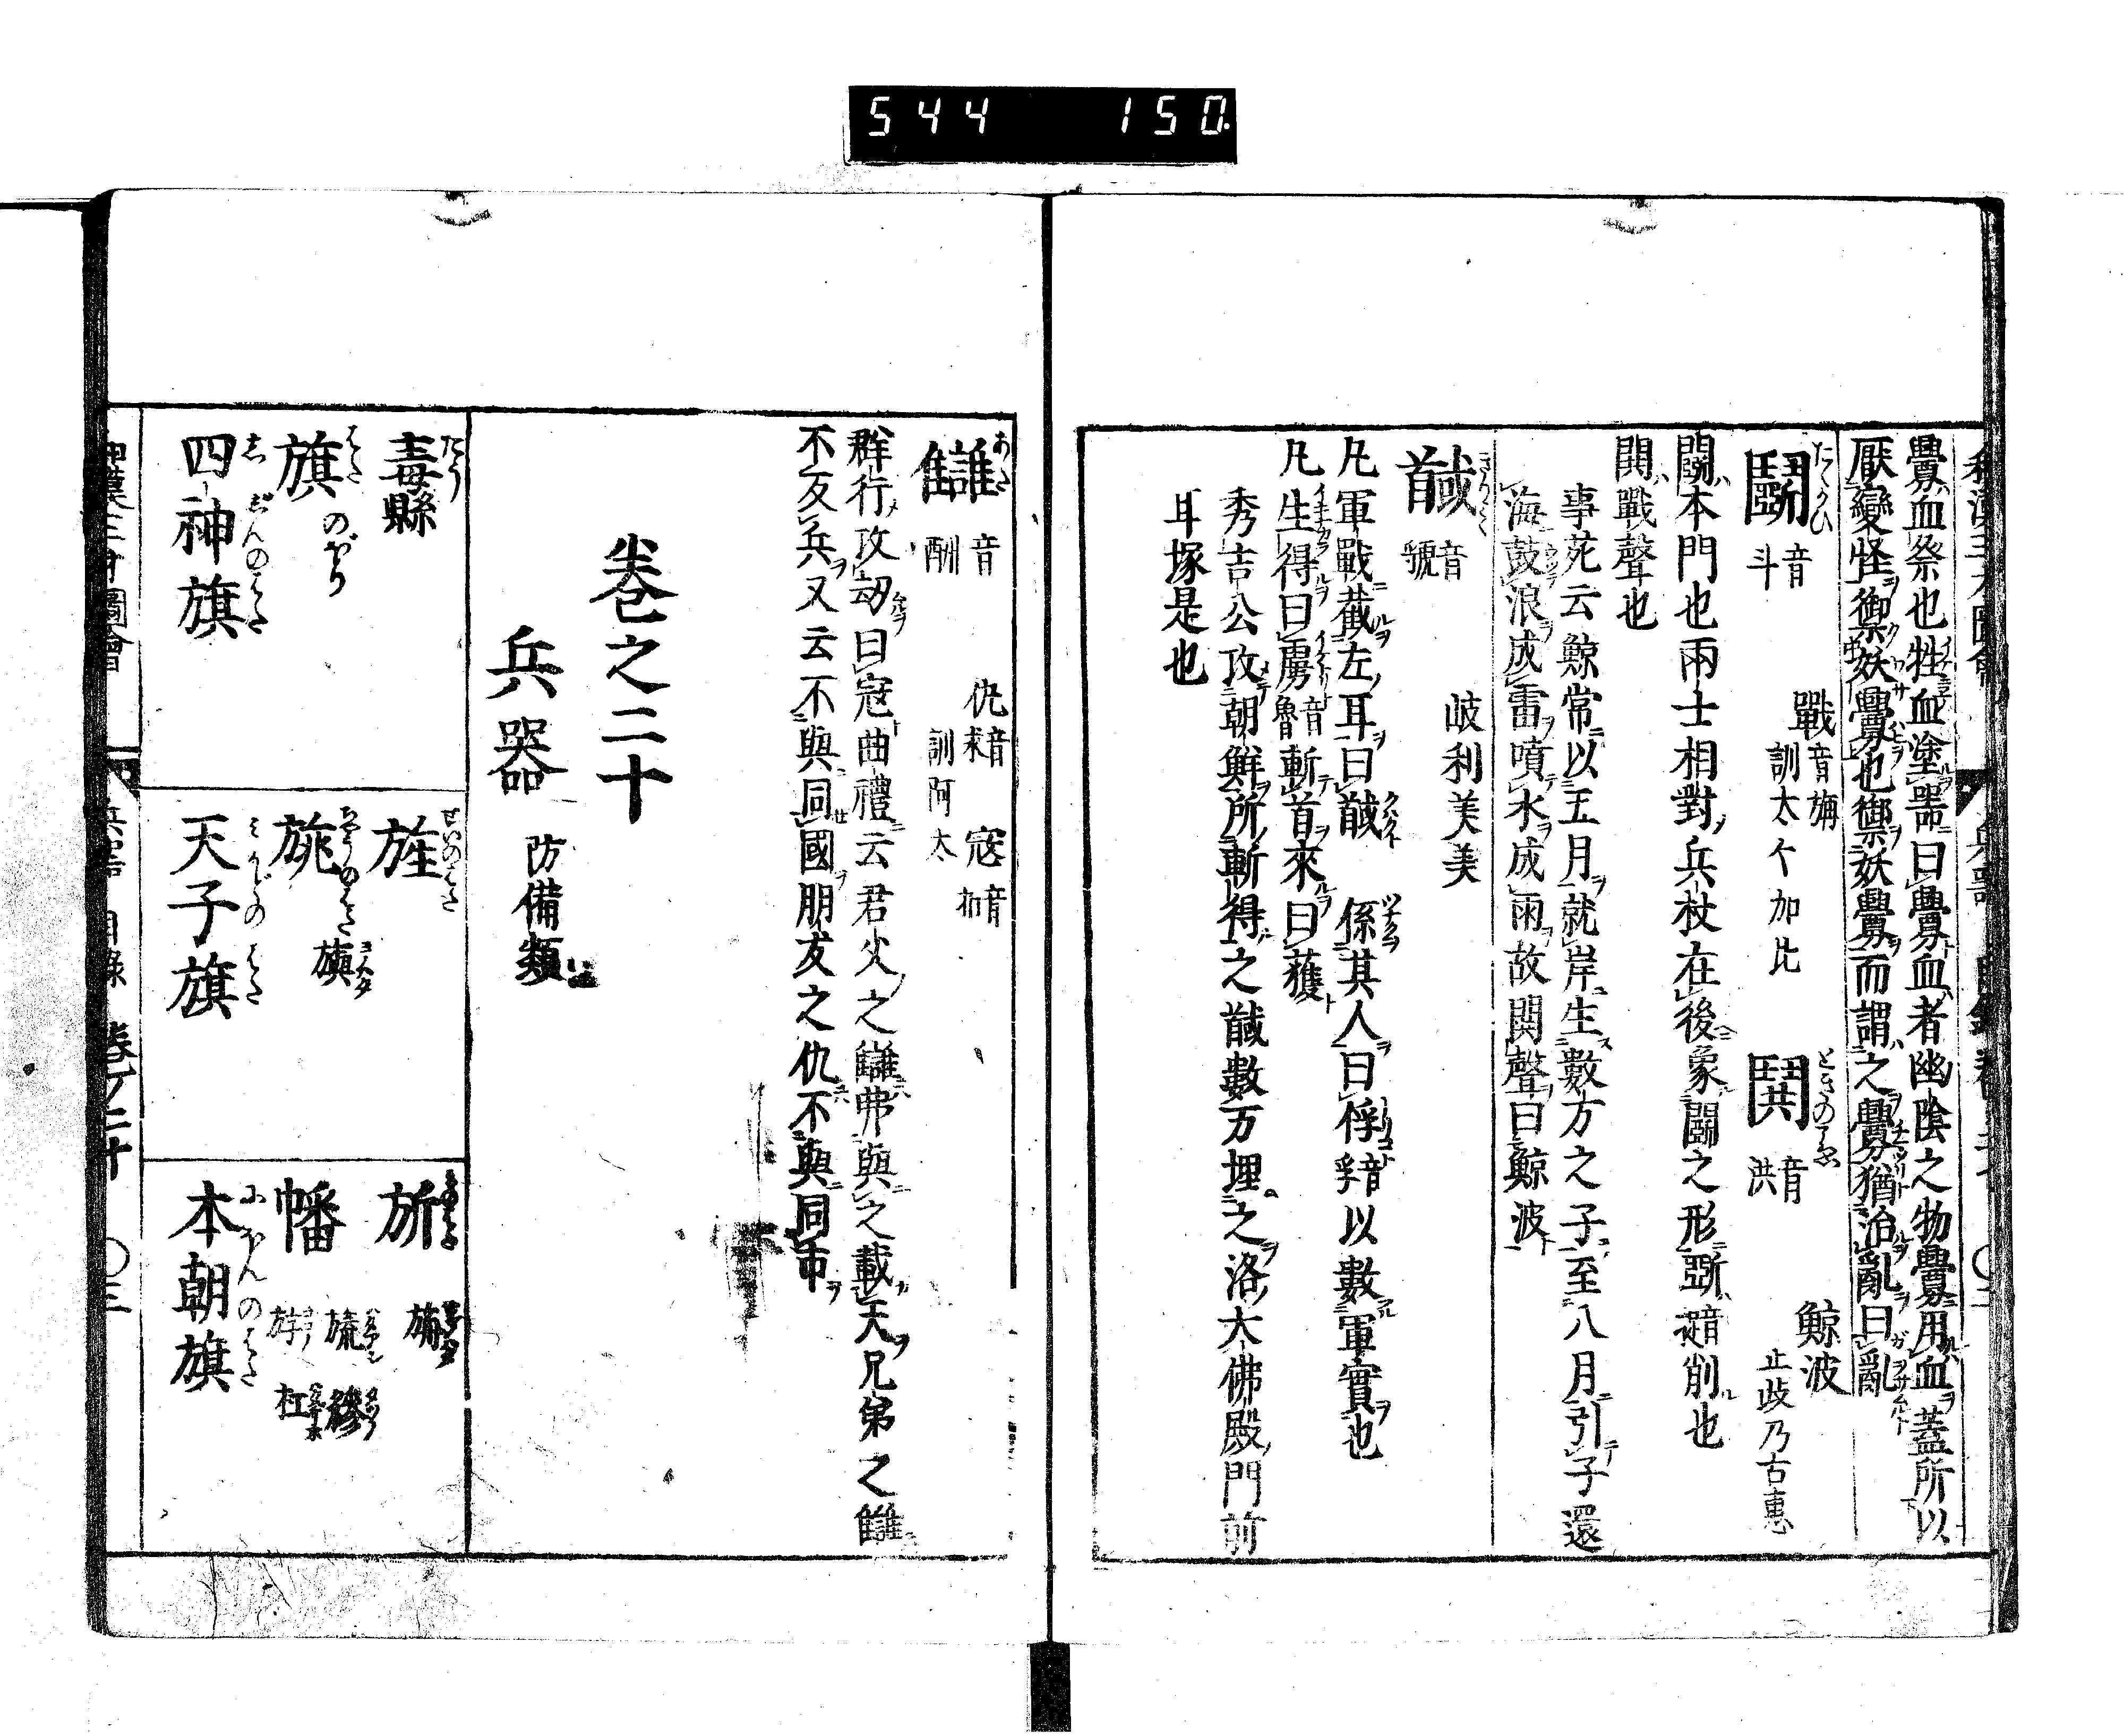 544 150
釁血祭也牲血塗器曰釁血者幽陰之物釁用血蓋所以
厭變怪禦妖釁也禦妖釁而謂之釁猶治亂曰亂
鬭 たゝかひ 音斗 戰 音旃 訓太々加比 鬨 ときのこゑ 音洪 鯨波 止岐乃古惠
鬭本門也兩士相對兵杖在後象鬭之形斲音斮削也
鬨戰聲也
事苑云鯨常以五月就岸生數万之子至八月引子還
海鼓浪成雷噴水成雨故鬨聲曰鯨波
馘 きりみゝ 音虢 岐利美美
凡軍戰截左耳曰馘 係其人曰俘音孚以數軍實也
凡生得曰虜音魯斬首來曰獲
秀吉公攻朝鮮所斬得之馘數万埋之洛大佛殿門前
耳塚是也
讎 あた 音酬 仇音求 寇音扣 訓阿太
群行攻劫曰寇曲禮云君父之讎弗與之載天兄弟之讎
不反兵又云不與同國朋友之仇不與同市
卷之二十
兵器 防備類
毒縣 たう
旌 せいのはた
旂
旗 はた のぼり
旐 てうのはた 旟
幡 旒 旓 杠
四神旗 しじんのはた
天子旗 みかどのはた
本朝旗 にほんのはた
和漢三才圖會 兵器 目錄 卷之二十 〇三